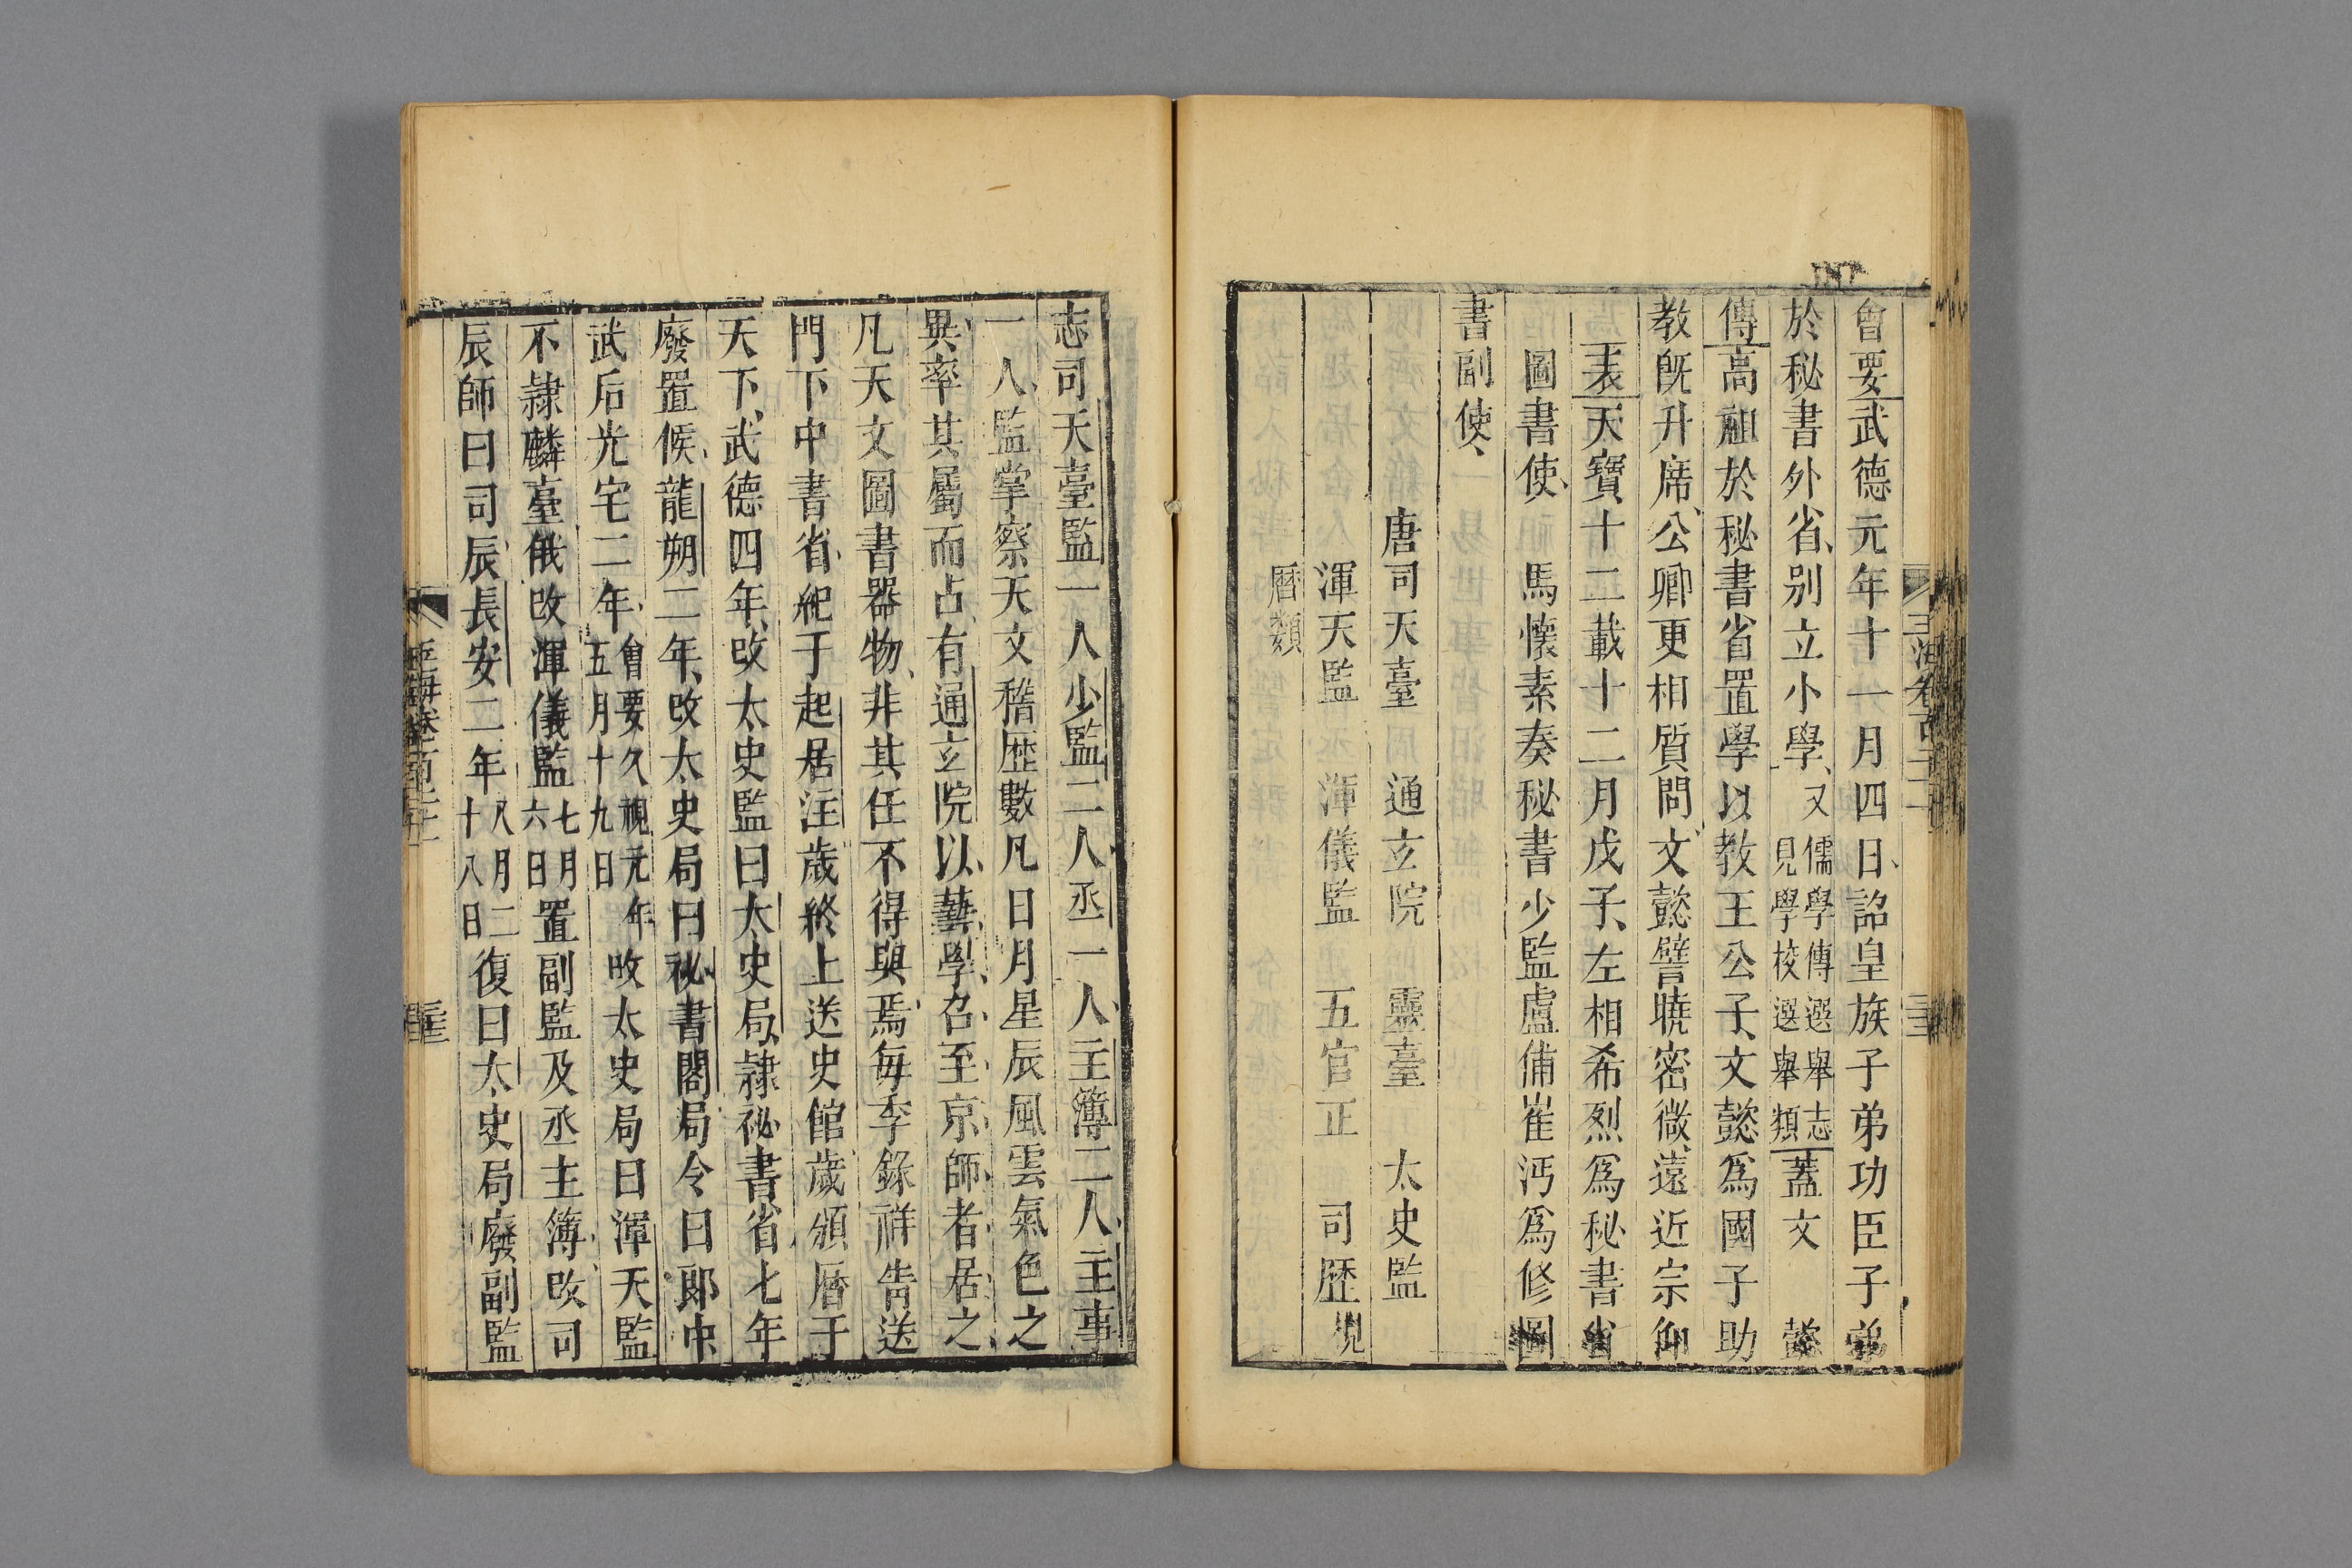 會要武德元年十一月四日詔皇族子弟功臣子弟
於秘書外省别立小學又儒學傳選舉志見學校選舉類蓋文懿
傳高祖於秘書省置學以教王公子文懿爲國子助
教旣升席公卿更相質問文懿譬曉密微遠近宗仰
表天寶十二載十二月戊子左相希烈爲秘書省
圖書使馬懷素奏秘書少監盧俌崔沔爲修圖
書副使
唐司天臺 通玄院 靈臺 太史監
渾天監 渾儀監 五官正 司歴見
曆類
志司天臺監一人少監二人丞一人主簿二人主事
一人監掌察天文稽歴數凡日月星辰風雲氣色之
異率其屬而占有通玄院以藝學召至京師者居之
凡天文圖書器物非其任不得與焉每季錄祥眚送
門下中書省紀于起居注歲終上送史館歲頒曆于
天下武德四年改太史監曰太史局隷祕書省七年
廢置候龍朔二年改太史局曰祕書閣局令曰郎中
武后光宅二年會要久視元年五月十九日改太史局曰渾天監
不隷麟臺俄改渾儀監七月六日置副監及丞主簿改司
辰師曰司辰長安二年八月二十八日復曰太史局廢副監